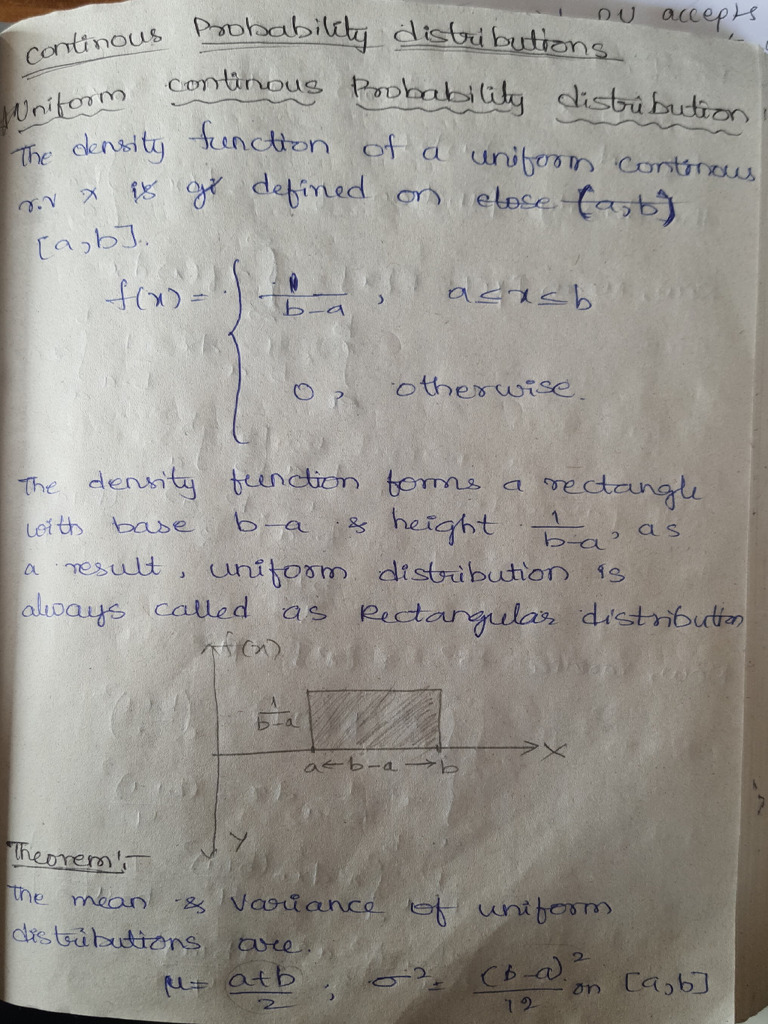 DU accepts
continous Probability distributions
Uniform continous Probability distribution
The density function of a uniform continous
r.v x is defined on close
[a,b].
f(x) = { 1/b-a , a≤x≤b
0, otherwise.
The density function forms a rectangle
with base b-a & height 1/b-a, as
a result, uniform distribution is
always called as Rectangular distribution
f(x)
1/b-a
a ← b-a → b X
Y
Theorem:-
The mean & variance of uniform
distributions are.
μ = a+b/2 ; σ² = (b-a)²/12 on [a,b]